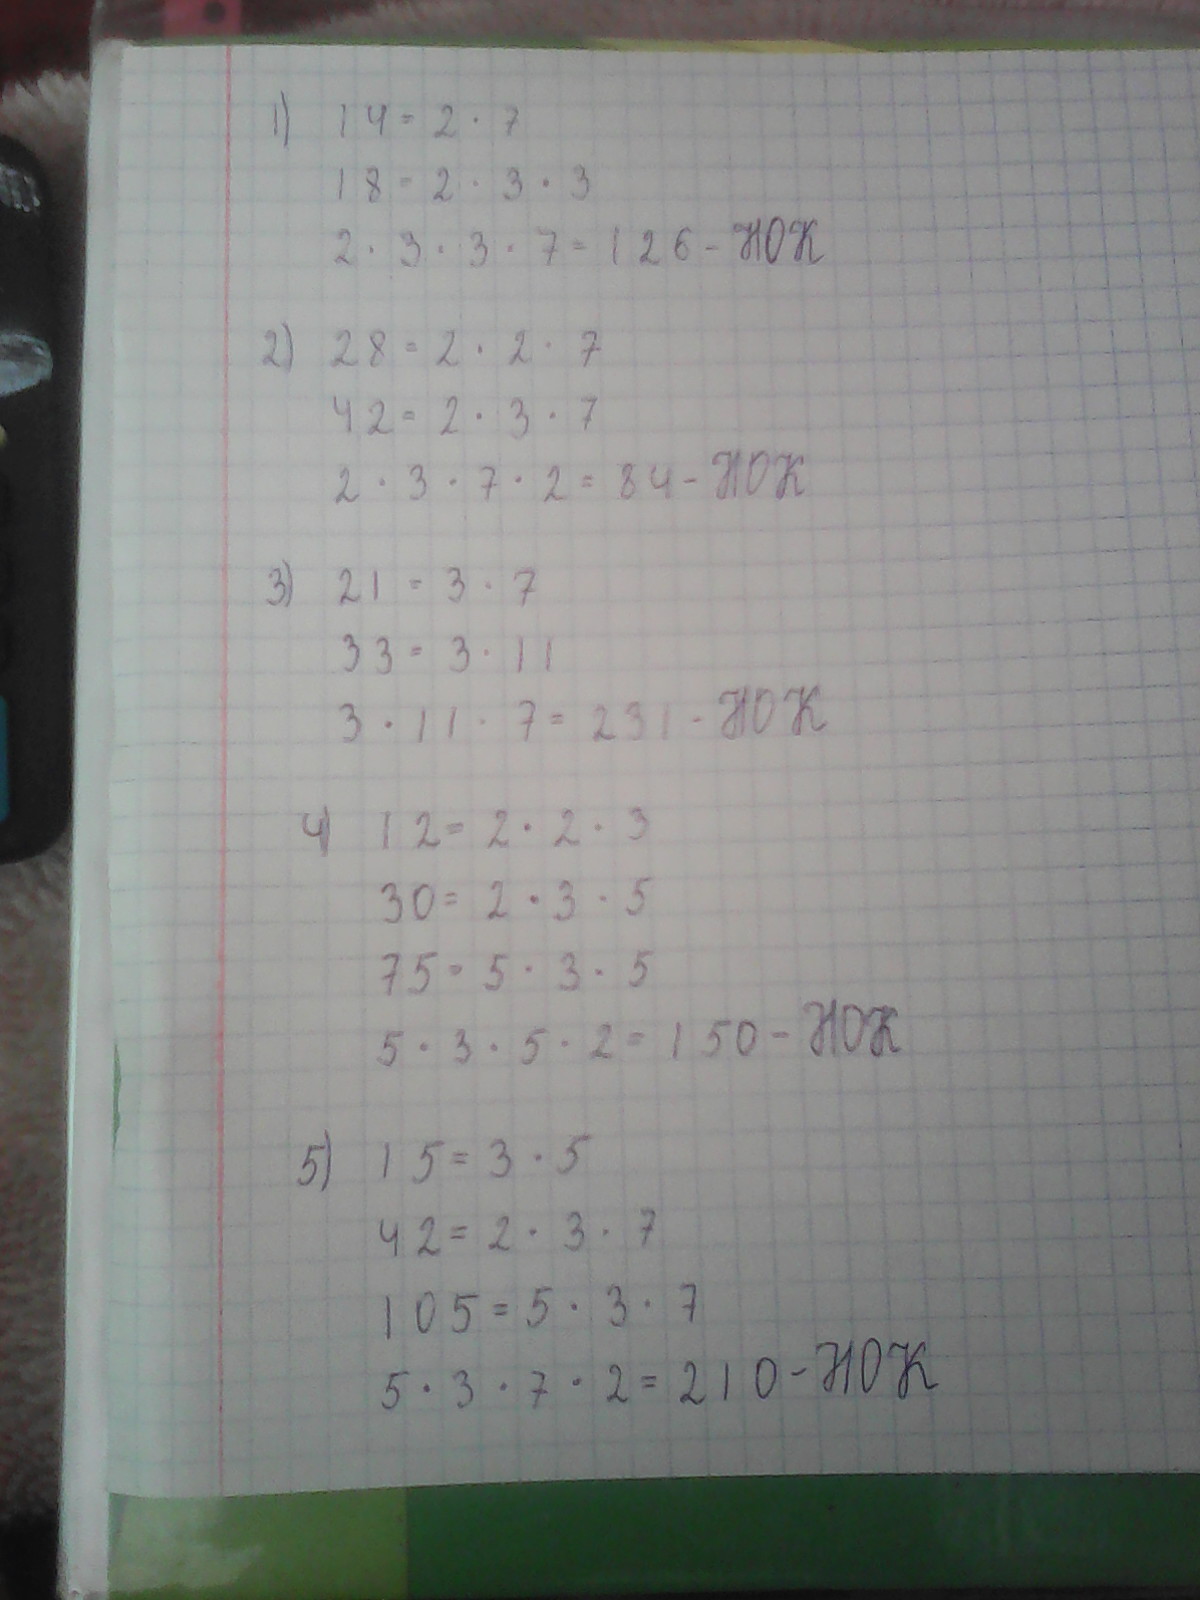 1) 14 = 2 · 7
18 = 2 · 3 · 3
2 · 3 · 3 · 7 = 126 - НОК
2) 28 = 2 · 2 · 7
42 = 2 · 3 · 7
2 · 3 · 7 · 2 = 84 - НОК
3) 21 = 3 · 7
33 = 3 · 11
3 · 11 · 7 = 231 - НОК
4) 12 = 2 · 2 · 3
30 = 2 · 3 · 5
75 = 5 · 3 · 5
5 · 3 · 5 · 2 = 150 - НОК
5) 15 = 3 · 5
42 = 2 · 3 · 7
105 = 5 · 3 · 7
5 · 3 · 7 · 2 = 210 - НОК